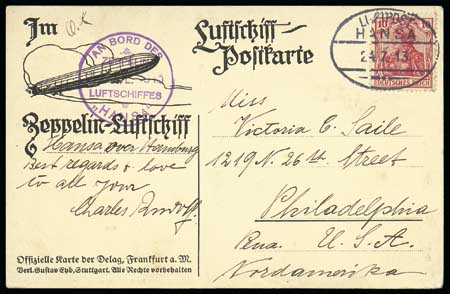 Im
Luftschiff-
Postkarte
AN BORD DES
LUFTSCHIFFES
„HANSA"
LUFTPOST
HANSA
24.7.13
DEUTSCHES REICH
Zeppelin-Luftschiff
Hansa over Hamburg
Best regards & love
to all your
Charles
Miss
Victoria C. Saile
1219 N. 26th Street
Philadelphia
Pena. U.S.A.
Nordamerika
Offizielle Karte der Delag, Frankfurt a. M.
Verl. Gustav Eyb, Stuttgart. Alle Rechte vorbehalten